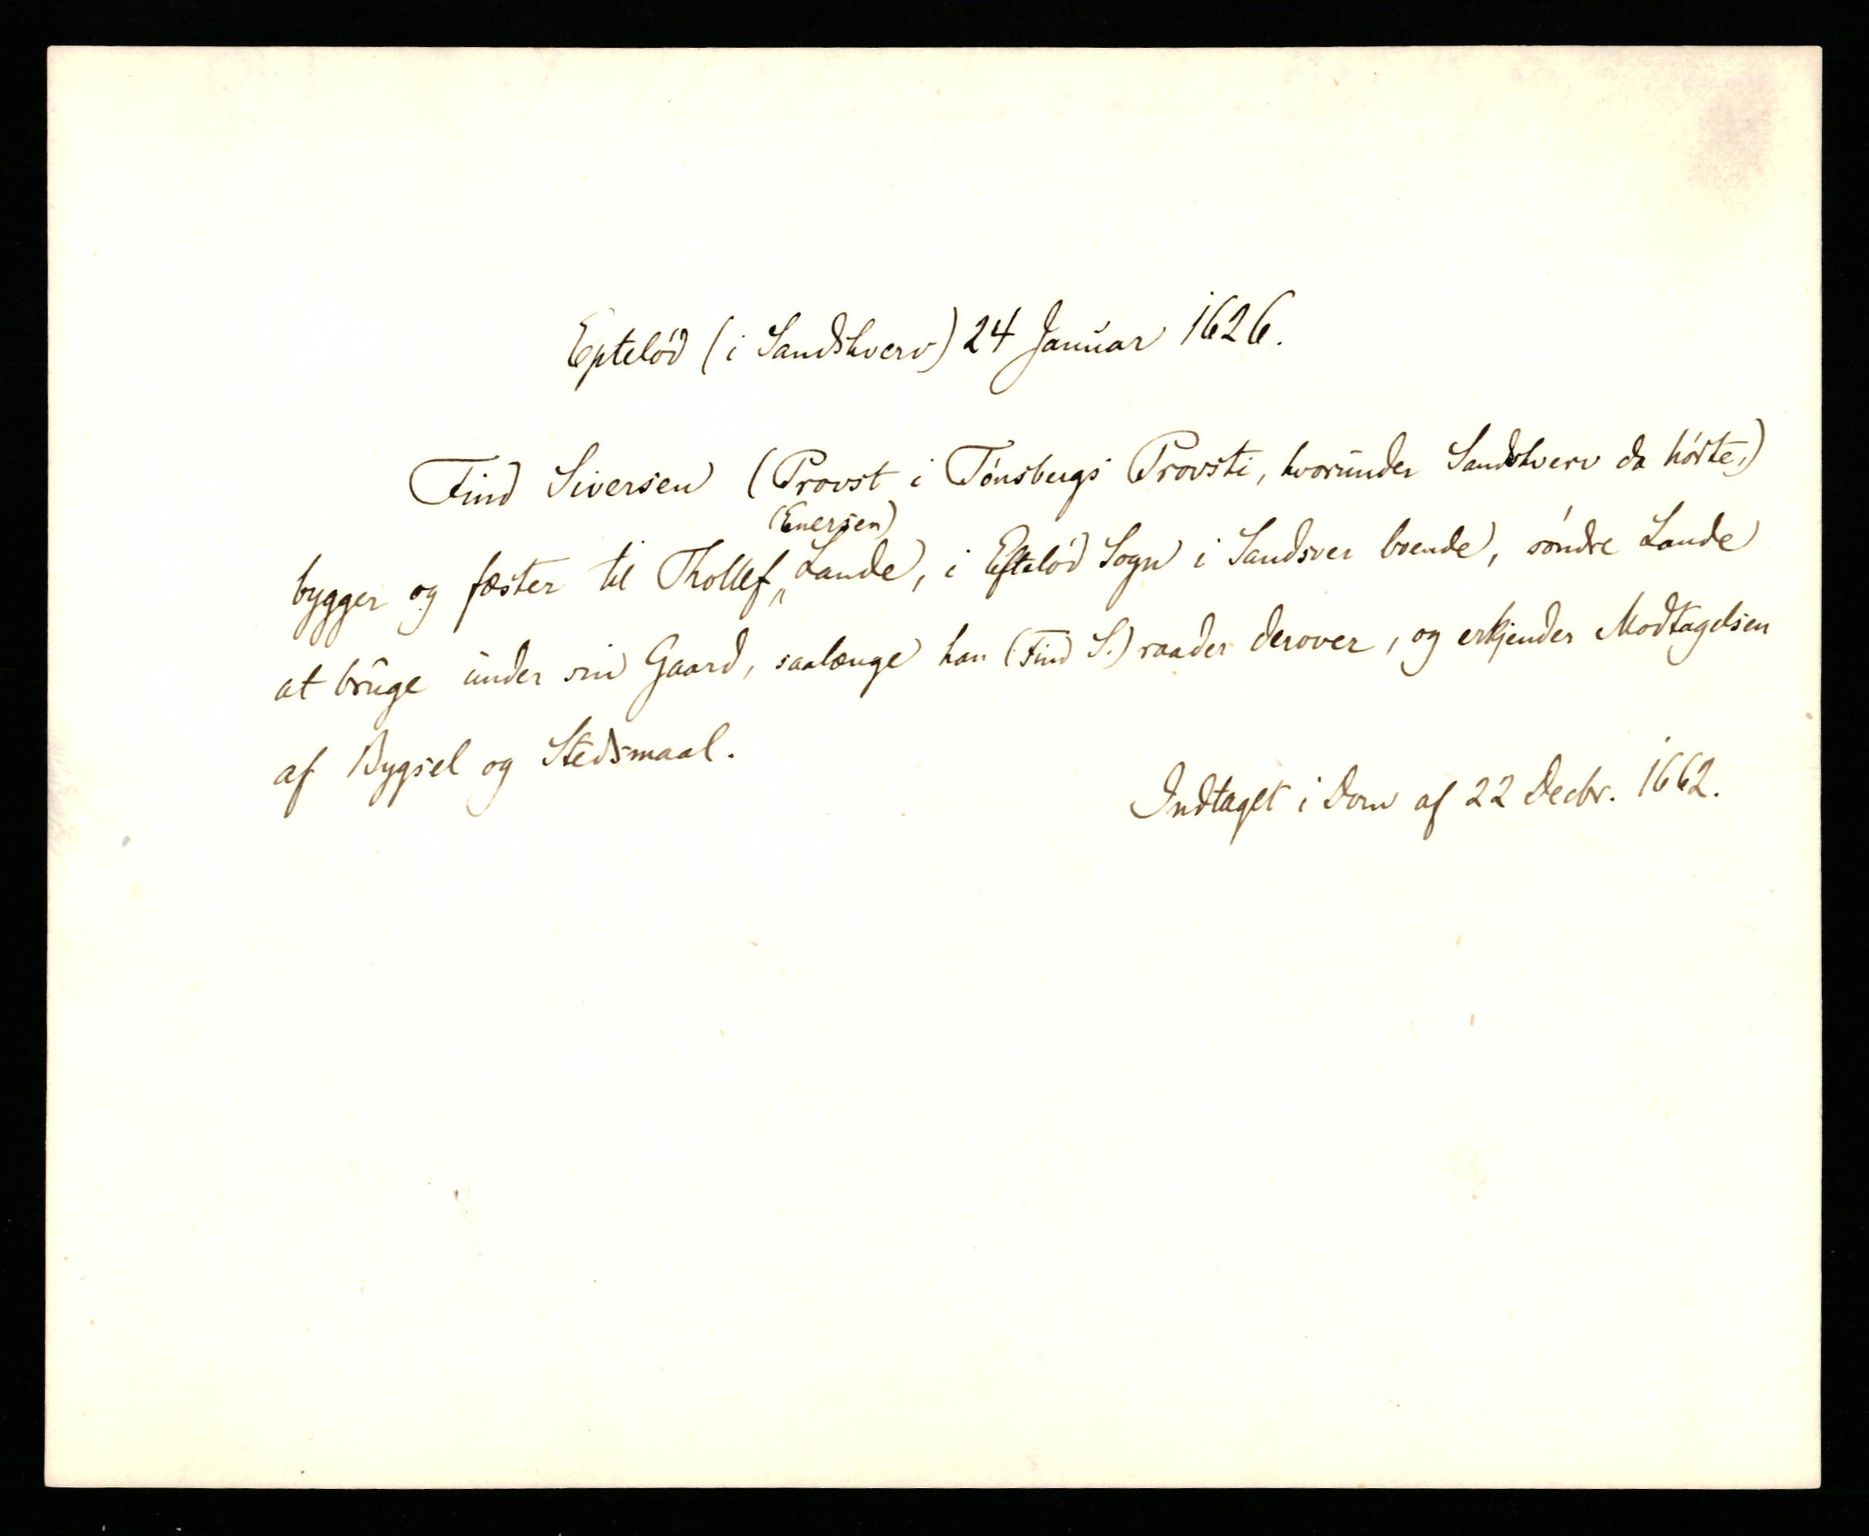 Eptelød (i Sandshverv) 24 Januar 1626.
Find Siversen (Provst i Tønsbergs Provsti, hvorunder Sandshverv da hørte,)
(Enersen)
bygger og fæster til Thollef „ Lande, i Eftelød Sogn i Sandsver boende, søndre Lande
at bruge under sin Gaard, saalænge han (Find S.) raader derover, og erkjender Modtagelsen
af Bygsel og Stedsmaal.
Indtaget i Dom af 22 Decbr. 1662.